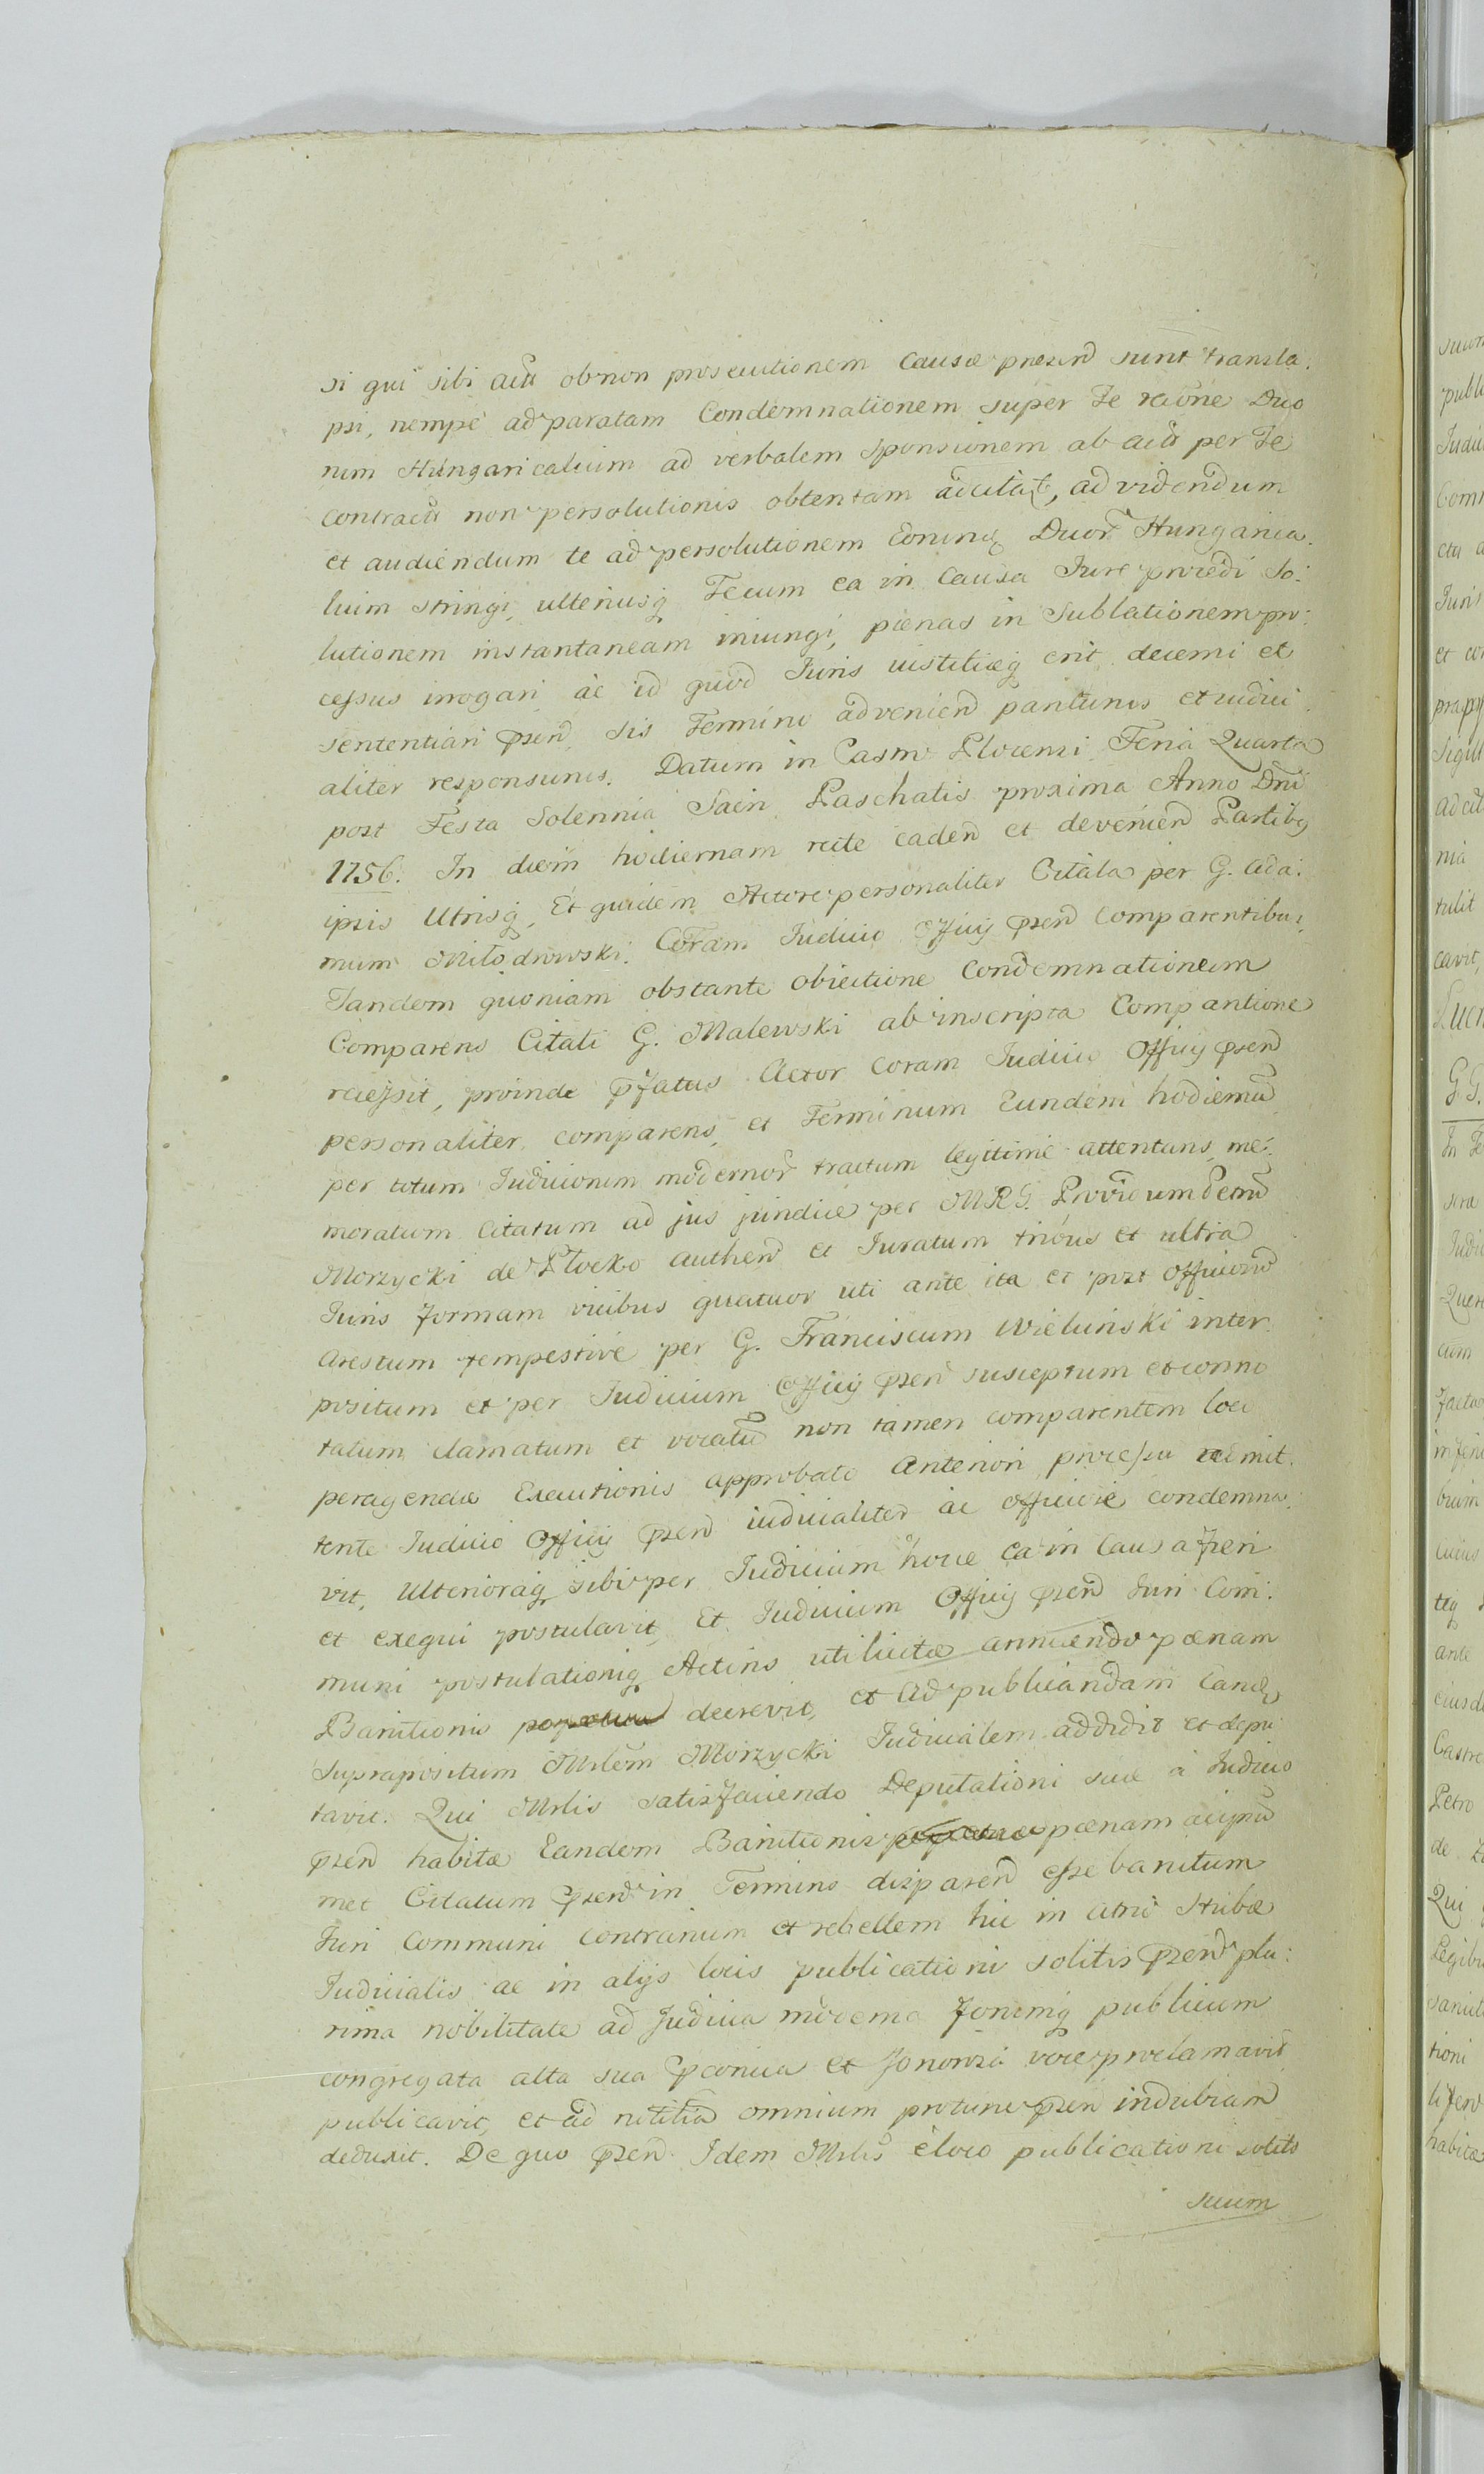 si qui sibi actū ob non prosecutionem Causæ præsend sunt transla:
psi, nempe ad paratam Condemnationem super Te raōne Duo
rum Hungaricalium ad verbalem Sponsionem ab actū per Te
contractū non persolutionis obtentam adcitat, ad videndum
et audiendum te ad persolutionem Eorunq Duor Hungarica.
lium stringi, ulteriusq Tecum ea in Causa Jure procedi So:
lutionem instantaneam iniungi, pænas in Sublationem pro:
cessus irrogari ac id quod Juris iustitiæq erit decerni et
sententiari præn sis Termino advenien pariturus et iudici
aliter responsurus. Datum in Castro Plocensi Feria Quarta
post Festa Solennia Sacri Paschatis proxima Anno Dni
1756. In diem hodiernam recte caden et devenien Partibq
ipsis Utrisq, Et quidem Actore personaliter Citato per G. Ada:
mum Miłodrowski. Coram Judicio Officij præn Comparentibus,
Tandem quoniam obstante obiectione Condemnationem
Comparens Citati G. Malewski ab inscripta Comparitione
recessit, proinde præfatus Actor Coram Judicio Officij præn
personaliter comparens, et Terminum Eundem hodiernū
per totum Judiciorum modernor tractum legitime attentans, me:
moratum Citatum ad jus juridice per MRG. Providum Petrū
Morzycki de Płocko authen et Juratum trinis et ultra
Juris formam vicibus quatuor uti ante ita et post officiosū
Arestum tempestive per G. Franciscum Wieluński inter
positum et per Judicium Officij præn susceptum et conno
tatum clamatum et vocatū non tamen comparentem loco
peragendæ Executionis approbato Anteriori processu admit.
tente Judicio Officij præn iudicialiter ac officiose condemna
vit, Ulterioraq sibi per Judicium hocce ea in Causa fieri
et exequi postulavit, Et Judicium Officij præn Juri Com:
muni postulationiq Actoris utilicitæ annuendo pænam
Banitionis decrevit, et Ad publicandam Eandē
Suprapositum Mrlem Morzycki Judicialem addidit et depu
tavit. Qui Mrlis satisfaciendo Deputationi suæ à Judicio
præn habitæ Eandem Banitionis pænam
met Citatum præn in Termino disparen esse banitum
Juri Communi contrarium et rebellem hic in atrio Stubæ
Judicialis ac in alijs locis publicationi solitis præn plu:
rima nobilitate ad Judicia moderna Forumq publicum
congregata alta sua præconica et sonorosa voce proclamavit
publicavit, et ad notitiā omnium protunc præn indubiam
deduxit. De quo præn Idem Mrlis è loco publicationi solito
suum